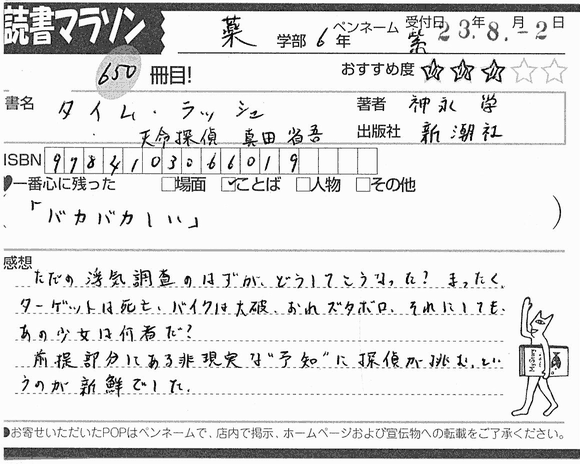 読書マラソン
薬 学部 6年 ペンネーム 紫 受付日 23.年8.月-2日
650 冊目! おすすめ度 ★★★☆☆
書名 タイム・ラッシュ
天命探偵 真田省吾
著者 神永 学
出版社 新潮社
ISBN 9784103066019
一番心に残った □場面 ☑ことば □人物 □その他
(「バカバカしい」)
感想
ただの浮気調査のはずが、どうしてこうなった?まったく、
ターゲットは死亡、バイクは大破、おれズタボロ、それにしても、
あの少女は何者だ?
前提部分にある非現実な“予知”に探偵が挑む、とい
うのが新鮮でした。
●お寄せいただいたPOPはペンネームで、店内で掲示、ホームページおよび宣伝物への転載をご了承ください。